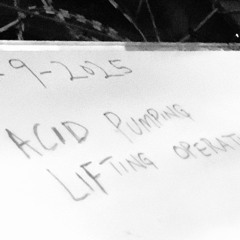 -9-2025
ACID PUMPING
LIFTING OPERAT